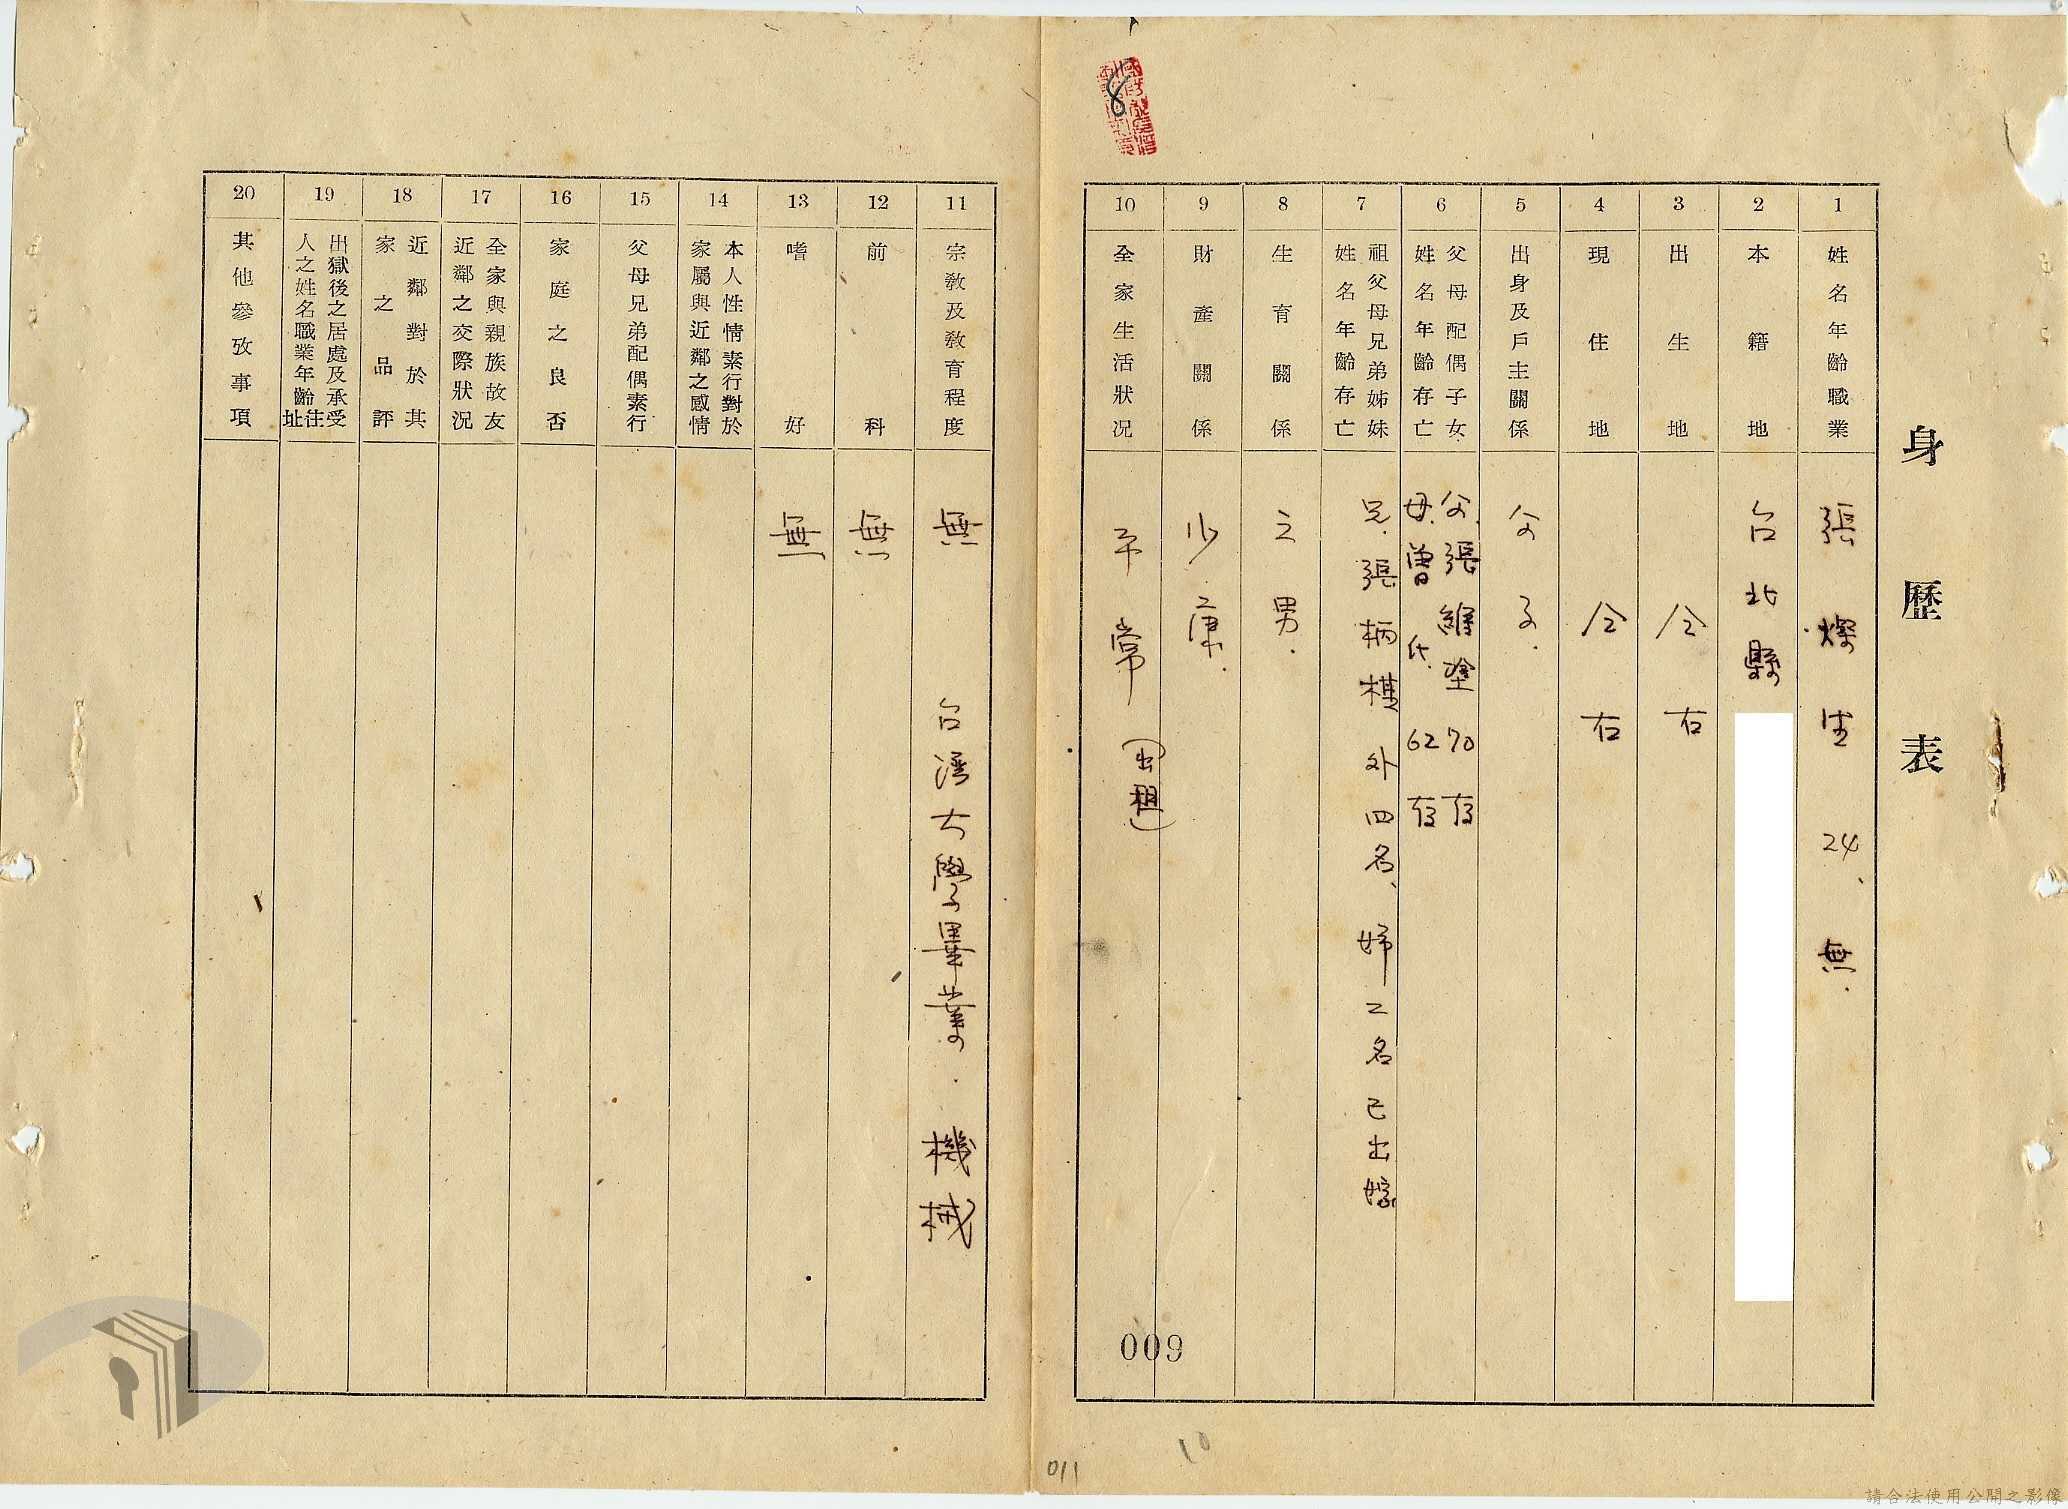 身歷表
1
姓名年齡職業
張燦生 24、無.
2
本籍地
台北縣
3
出生地
仝右
4
現住地
仝右
5
出身及戶主關係
父子.
6
父母配偶子女
姓名年齡存亡
父.張維塗 70 存
母.曾氏. 62 存
7
祖父母兄弟姊妹
姓名年齡存亡
兄.張柄棋 外四名、姉二名已出嫁
8
生育關係
三男.
9
財產關係
小康.
10
全家生活狀況
平常(出租)
11
宗教及教育程度
無 台灣大學畢業. 機械
12
前科
無
13
嗜好
無
14
本人性情素行對於
家屬與近鄰之感情
15
父母兄弟配偶素行
16
家庭之良否
17
全家與親族故友
近鄰之交際狀況
18
近鄰對於其
家之品評
19
出獄後之居處及承受
人之姓名職業年齡住址
20
其他參攷事項
8
009
10
011
請合法使用公開之影像